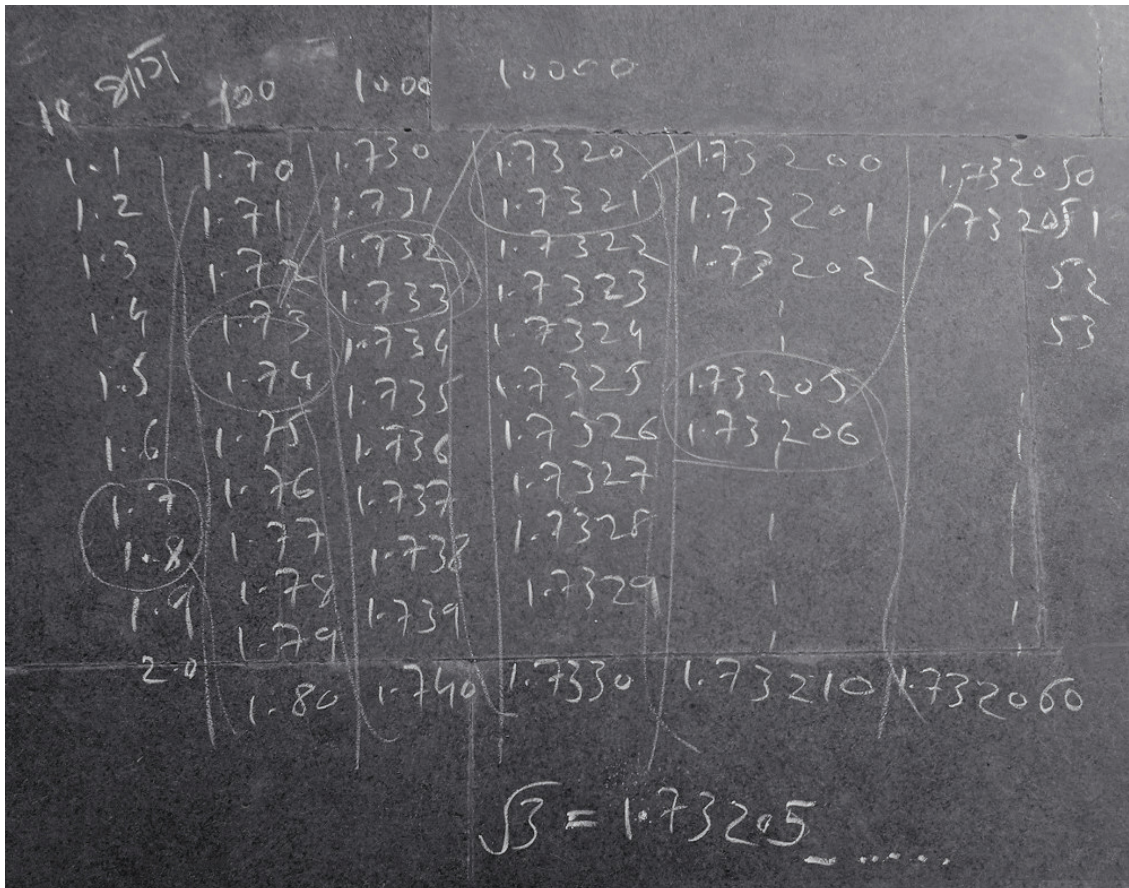 10 भाग 100 1000 10000
1.1 1.70 1.730 1.7320 1.73200 1.732050
1.2 1.71 1.731 1.7321 1.73201 1.732051
1.3 1.72 1.732 1.7322 1.73202 52
1.4 1.73 1.733 1.7323 53
1.5 1.74 1.734 1.7324
1.6 1.75 1.735 1.7325 1.73205
1.7 1.76 1.736 1.7326 1.73206
1.8 1.77 1.737 1.7327
1.9 1.78 1.738 1.7328
2.0 1.79 1.739 1.7329
1.80 1.740 1.7330 1.73210 1.732060
√3 = 1.73205_.....